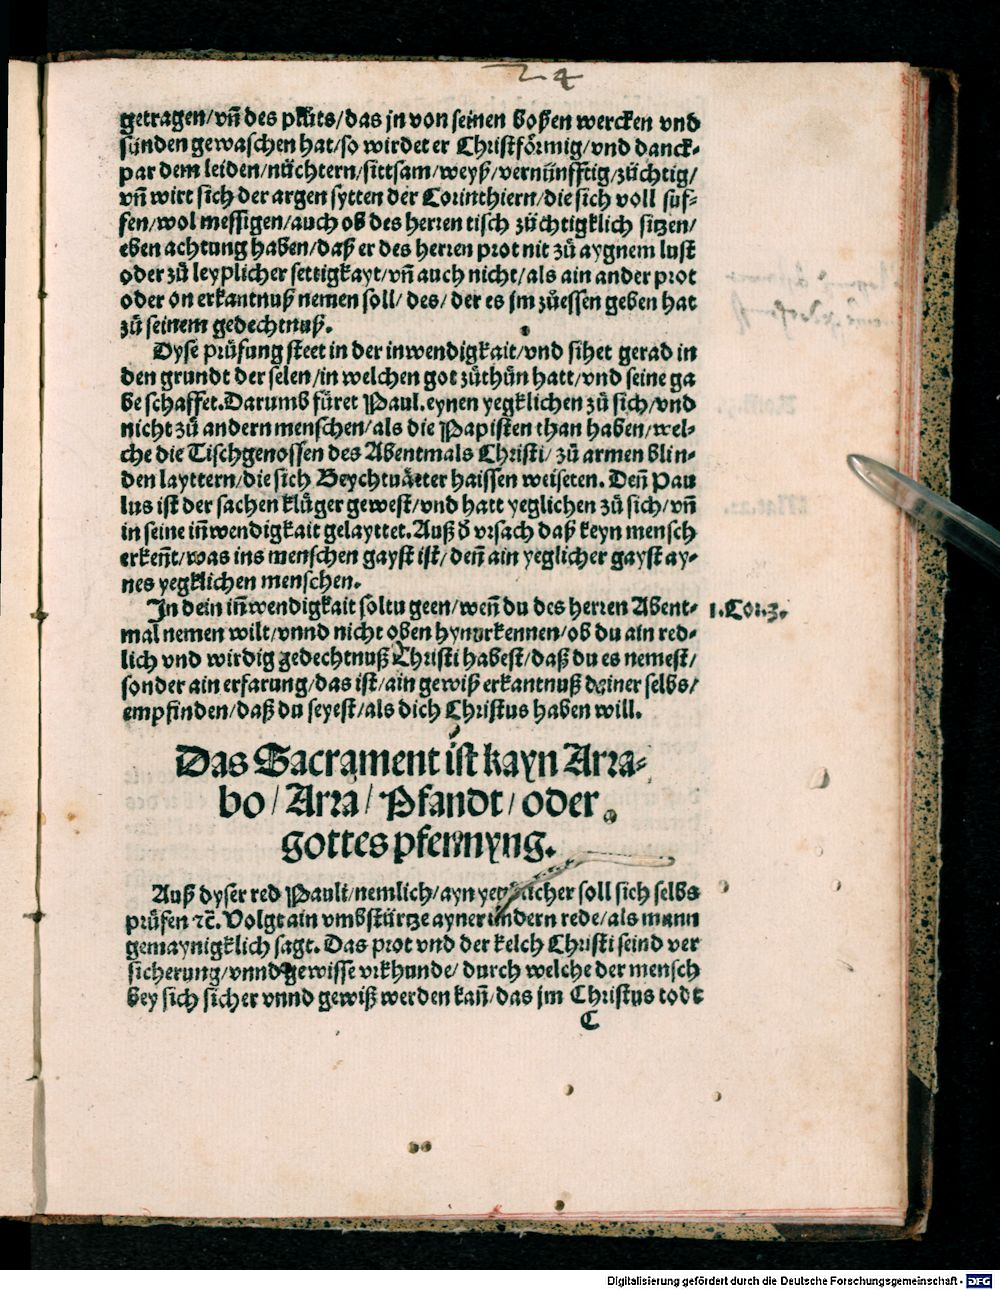 24
getragen/vñ des pluͦts/das jn von seinen boßen wercken vnd
sünden gewaschen hat/so wirdet er Christförmig/vnd danck-
par dem leiden/nüchtern/sittsam/weyß/vernünfftig/züchtig/
vñ wirt sich der argen sytten der Corinthiern/die sich voll suf-
fen/wol messigen/auch ob des herren tisch züchtigklich sitzen/
eben achtung haben/daß er des herren prot nit zuͦ aygnem lust
oder zuͦ leyplicher settigkayt/vñ auch nicht/als ain ander prot
oder on erkantnuß nemen soll/des/der es jm zuͦessen geben hat
zuͦ seinem gedechtnuß.
Dyse prüfung steet in der inwendigkait/vnd sihet gerad in
den grundt der selen/in welchen got zuͦthuͦn hatt/vnd seine ga
be schaffet. Darumb füret Paul. eynen yegklichen zuͦ sich/vnd
nicht zuͦ andern menschen/als die Papisten than haben/wel-
che die Tischgenossen des Abentmals Christi/zuͦ armen blin-
den layttern/die sich Beychtuätter haissen weiseten. Deñ Pau
lus ist der sachen klüger gewest/vnd hatt yeglichen zuͦ sich/vñ
in seine iñwendigkait gelayttet. Auß d̄ vrsach daß keyn mensch
erkeñt/was ins menschen gayst ist/deñ ain yeglicher gayst ay-
nes yegklichen menschen.
In dein iñwendigkait soltu geen/weñ du des herren Abent-
1.Cor.3.
mal nemen wilt/vnnd nicht oben hynerkennen/ob du ain red-
lich vnd wirdig gedechtnuß Christi habest/daß du es nemest/
sonder ain erfarung/das ist/ain gewiß erkantnuß deiner selbs/
empfinden/daß du seyest/als dich Christus haben will.
Das Sacrament ist kayn Arra-
bo/Arra/Pfandt/oder
gottes pfennyng.
Auß dyser red Pauli/nemlich/ayn yegklicher soll sich selbs
prüfen ꝛc̄. Volgt ain vmbstürtze ayner andern rede/als mann
gemaynigklich sagt. Das prot vnd der kelch Christi seind ver
sicherung/vnnd gewisse vrkhunde/durch welche der mensch
bey sich sicher vnnd gewiß werden kañ/das jm Christus todt
C
Digitalisierung gefördert durch die Deutsche Forschungsgemeinschaft - DFG